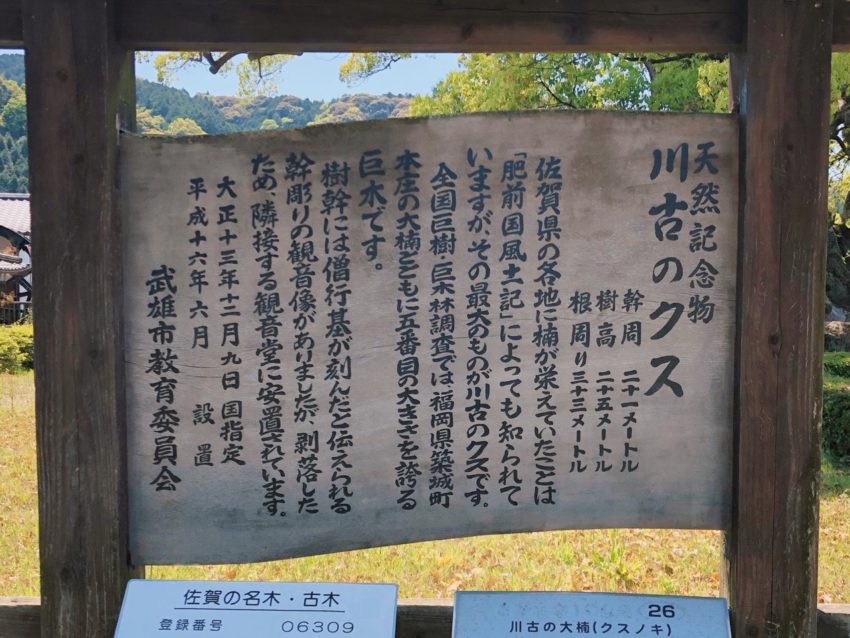 天然記念物
川古のクス
幹周 二十一メートル
樹高 二十五メートル
根周り 三十三メートル
佐賀県の各地に楠が栄えていたことは
「肥前国風土記」によっても知られて
いますが、その最大のものが川古のクスです。
全国巨樹・巨木林調査では、福岡県築城町
本庄の大楠とともに五番目の大きさを誇る
巨木です。
樹幹には僧行基が刻んだと伝えられる
幹彫りの観音像がありましたが、剥落した
ため、隣接する観音堂に安置されています。
大正十三年十二月九日 国指定
平成十六年六月 設置
武雄市教育委員会
佐賀の名木・古木
登録番号 06309
26
川古の大楠(クスノキ)